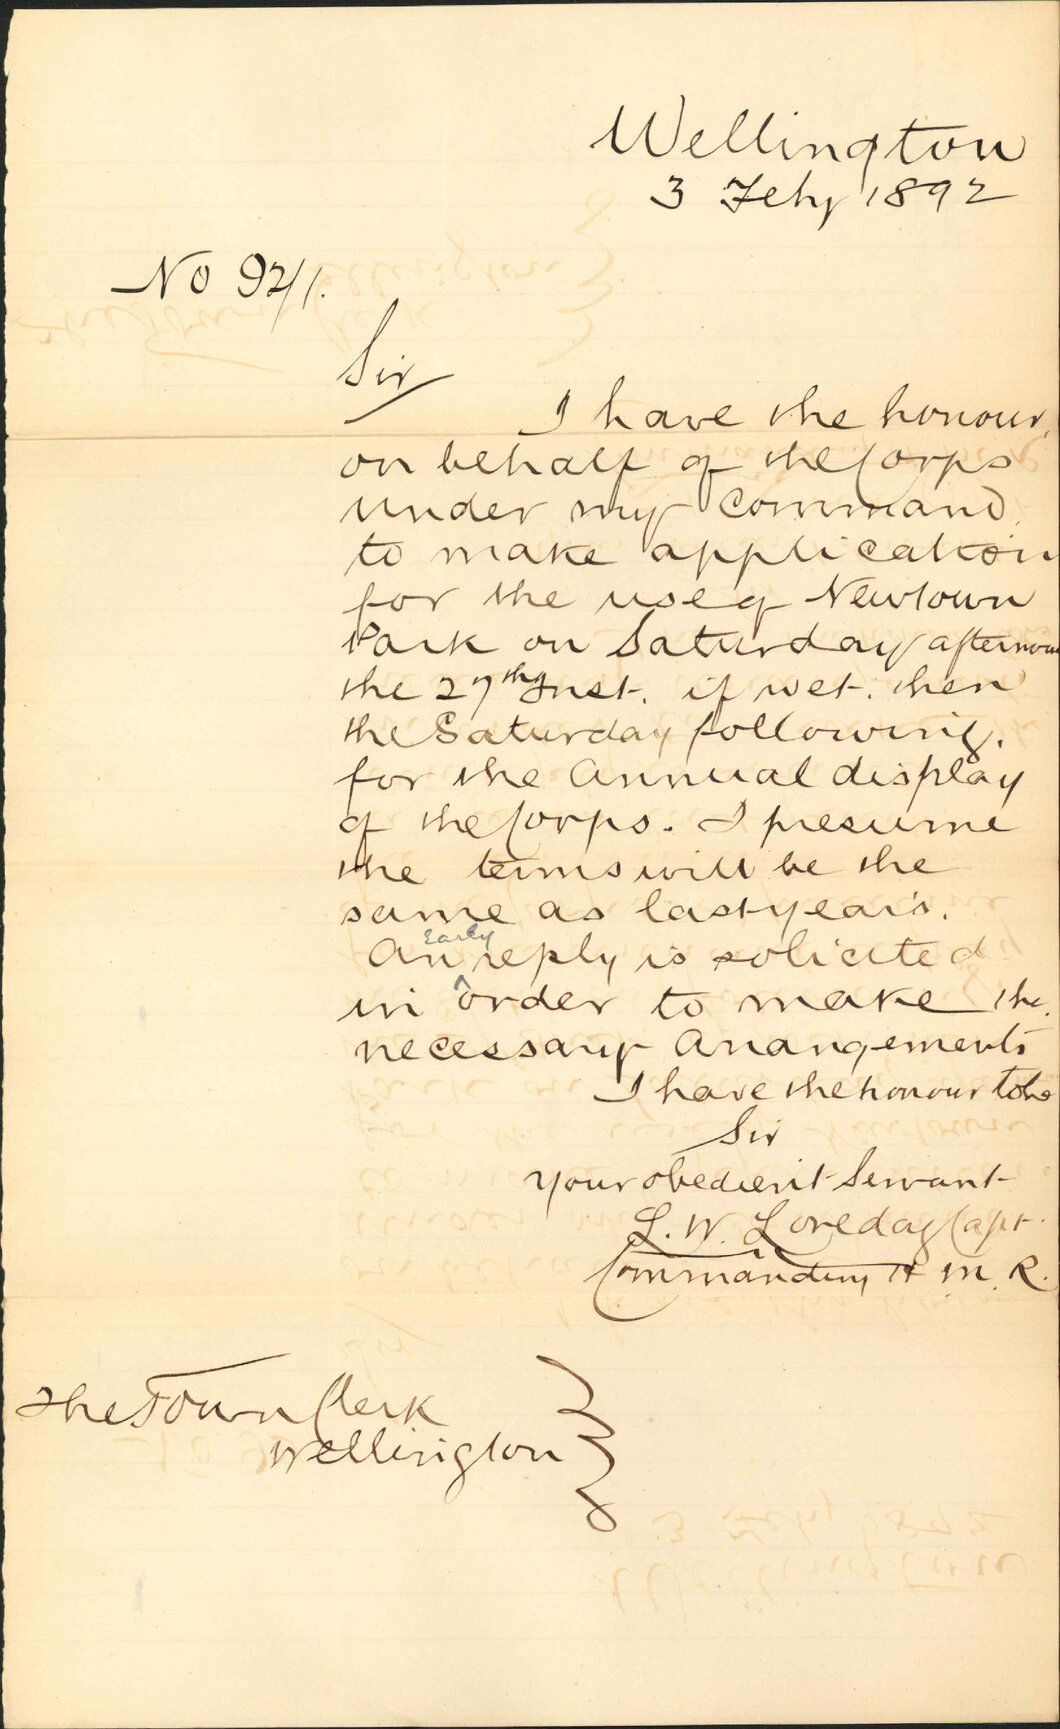 Wellington
3 Feby 1892
No 92/1.
Sir
I have the honour,
on behalf of the Corps
under my Command,
to make application
for the use of Newtown
Park on Saturday afternoon
the 27th Inst. if wet. then
the Saturday following.
for the Annual display
of the Corps. I presume
the terms will be the
same as last year's.
An early reply is solicited
in order to make the
necessary Arrangements
I have the honour to be
Sir
your obedient Servant
L. W. Loveday Capt.
Commanding H M. R.
The Town Clerk
Wellington